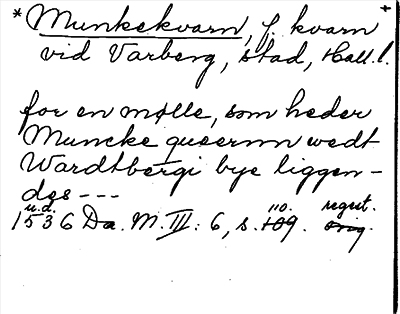 * Munkekvarn, f. kvarn +
vid Varberg, stad, Hall. l.
for en mølle, som heder
Muncke queernn wedt
Wardtbergi bye liggen-
des ---
u.d. 110. regist.
1536 Da. M. III: 6, s. 109. orig.